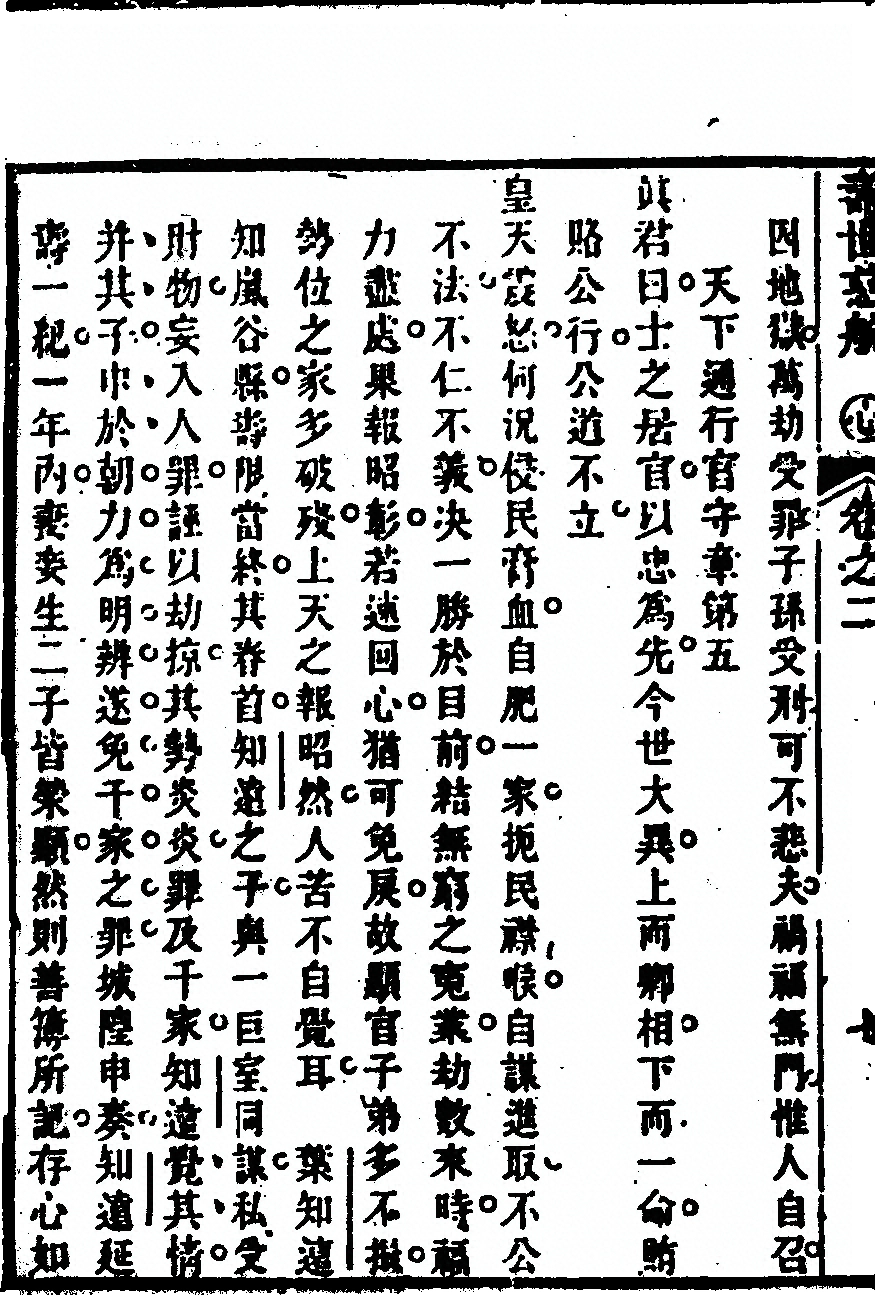 壽世慈航 卷之二
囚地獄萬劫受罪子孫受刑可不悲夫禍福無門惟人自召
天下通行官守章第五
眞君曰士之居官以忠爲先今世大異上而卿相下而一命賄
賂公行公道不立
皇天震怒何況侵民膏血自肥一家扼民襟喉自謀進取不公
不法不仁不義决一勝於目前結無窮之寃業劫數來時福
力盡處果報昭彰若速回心猶可免戾故顯官子弟多不振
勢位之家多破殘上天之報昭然人苦不自覺耳 葉知遠
知嵐谷縣壽限當終其春首知遠之子與一巨室同謀私受
財物妄入人罪誣以劫掠其勢炎炎罪及千家知遠覺其情
并其子申於朝力爲明辨遂免千家之罪城隍申奏知遠延
壽一紀一年內妻妾生二子皆榮顯然則善簿所記存心如